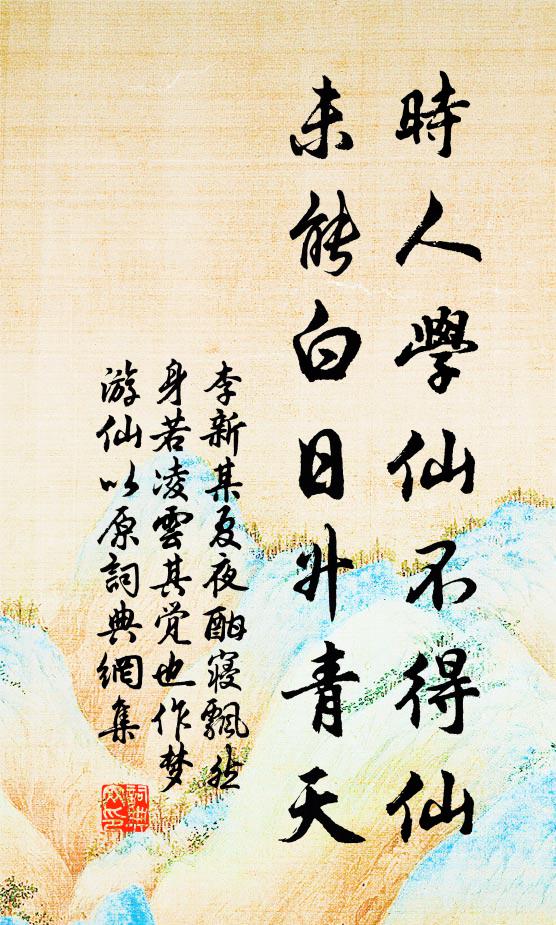 時人學仙不得仙
未能白日升青天
李新某夏夜酣寝飄然
身若凌雲其覚也作梦
游仙以原詞典網集